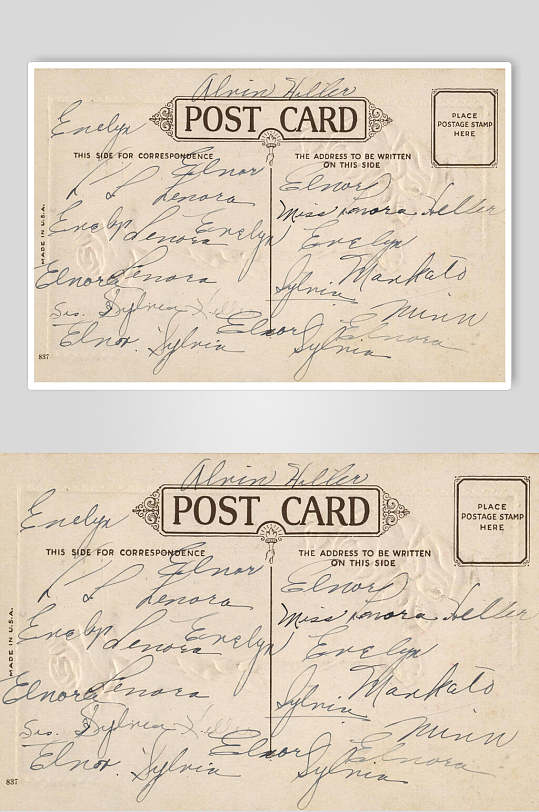 Alvin Heller
POST CARD
PLACE
POSTAGE STAMP
HERE
Evelyn
THIS SIDE FOR CORRESPONDENCE
THE ADDRESS TO BE WRITTEN
ON THIS SIDE
Elnor
L L Lenora
Elnora
Miss Lenora Heller
Evelyn Lenora Evelyn
Evelyn
MADE IN U.S.A.
Elnora Lenora
Sylvia Mankato
Sis. Sylvia Heller
Minn
Elnor. Sylvia
Elnor
Sylvia
Elnora
837
Alvin Heller
POST CARD
PLACE
POSTAGE STAMP
HERE
Evelyn
THIS SIDE FOR CORRESPONDENCE
THE ADDRESS TO BE WRITTEN
ON THIS SIDE
Elnor
L L Lenora
Elnora
Miss Lenora Heller
Evelyn Lenora Evelyn
Evelyn
MADE IN U.S.A.
Elnora Lenora
Sylvia Mankato
Sis. Sylvia Heller
Minn
Elnor. Sylvia
Elnor
Sylvia
Elnora
837